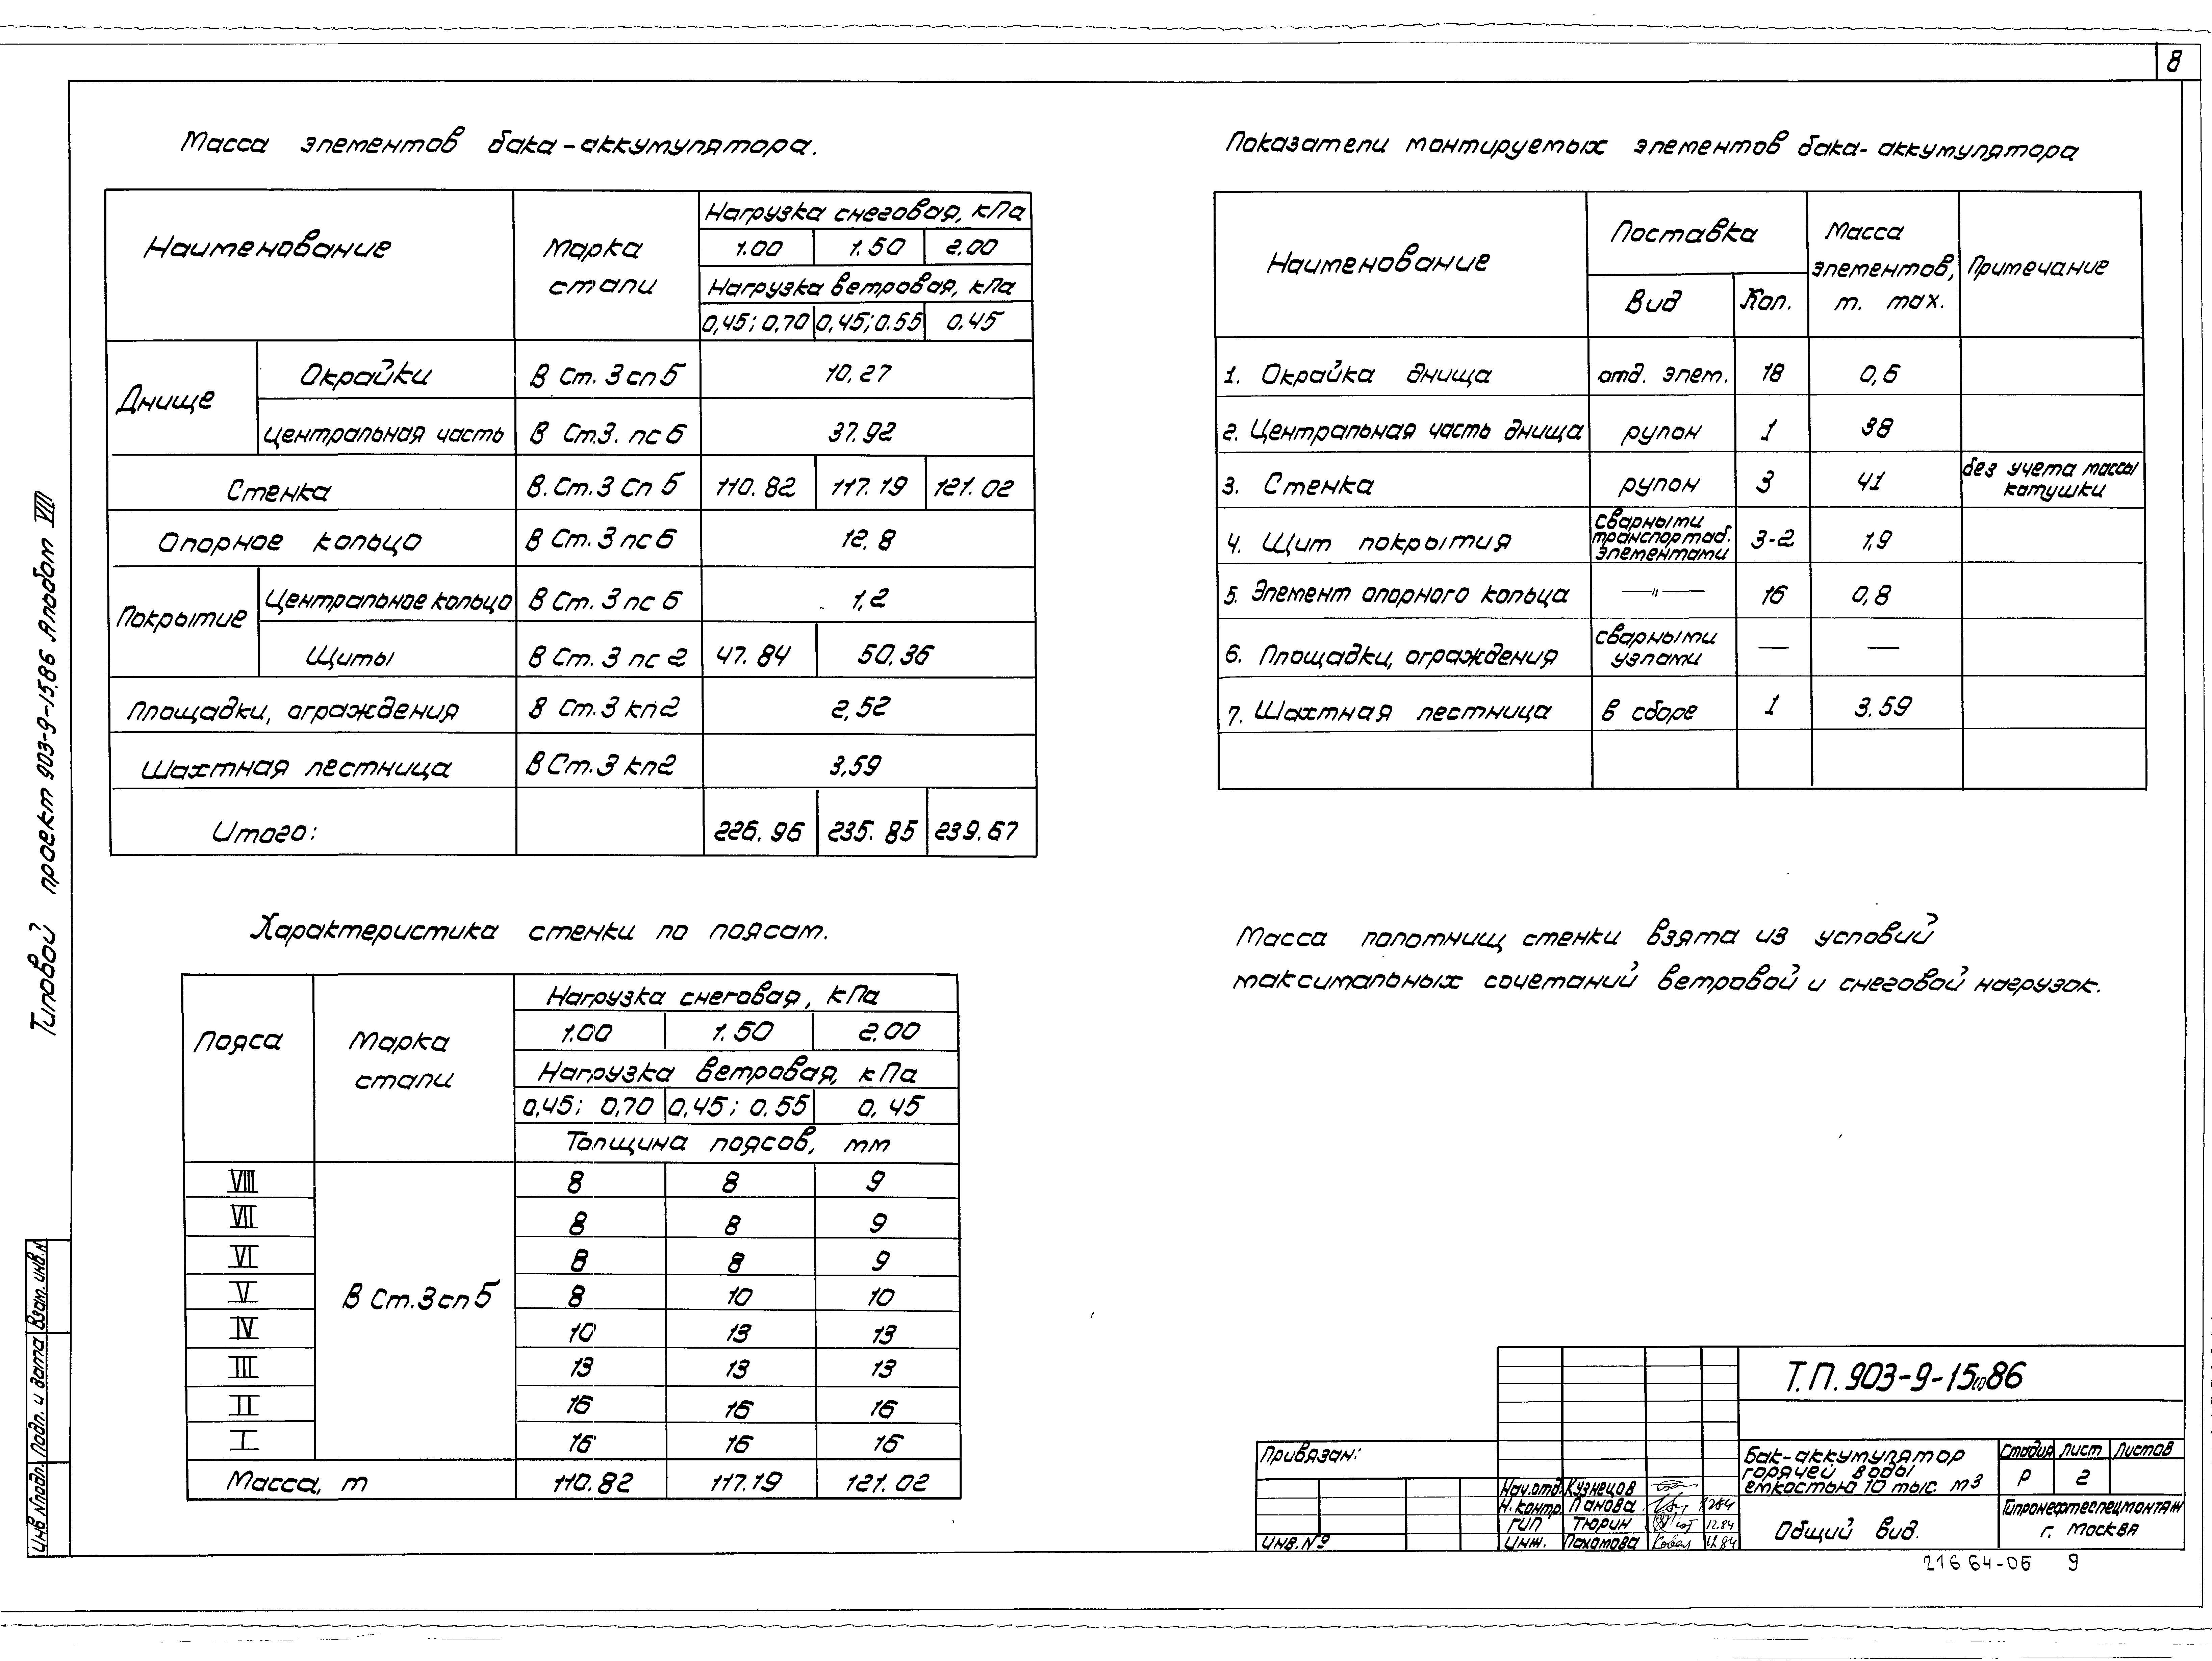 8
Масса элементов бака-аккумулятора.
Наименование Марка стали Нагрузка снеговая, кПа
1.00 1.50 2,00
Нагрузка ветровая, кПа
0,45; 0,70 0,45; 0.55 0.45
Днище Окрайки В Ст. 3 сп 5 10,27
Центральная часть В Ст.3. пс 6 37.92
Стенка В. Ст. 3 Сп 5 110.82 117.19 121.02
Опорное кольцо В Ст. 3 пс 6 12,8
Покрытие Центральное кольцо В Ст. 3 пс 6 1,2
Щиты В Ст. 3 пс 2 47.84 50,36
Площадки, ограждения В Ст. 3 кп 2 2,52
Шахтная лестница В Ст. 3 кп 2 3,59
Итого: 226.96 235.85 239.67
Показатели монтируемых элементов бака-аккумулятора
Наименование Поставка Масса элементов, т. max. Примечание
Вид Кол.
1. Окрайка днища отд. элем. 18 0,6
2. Центральная часть днища рулон 1 38
3. Стенка рулон 3 41 без учета массы катушки
4. Щит покрытия сварными транспортаб. элементами 3-2 1,9
5. Элемент опорного кольца —"— 16 0,8
6. Площадки, ограждения сварными узлами — —
7. Шахтная лестница в сборе 1 3.59
Характеристика стенки по поясам.
Пояса Марка стали Нагрузка снеговая, кПа
1.00 1.50 2,00
Нагрузка ветровая, кПа
0,45; 0,70 0,45; 0.55 0,45
Толщина поясов, мм
VIII 8 8 9
VII 8 8 9
VI 8 8 9
V В Ст. 3 сп 5 8 10 10
IV 10 13 13
III 13 13 13
II 16 16 16
I 16 16 16
Масса, т 110.82 117.19 121.02
Масса полотнищ стенки взята из условий
максимальных сочетаний ветровой и снеговой нагрузок.
Типовой проект 903-9-15.86 Альбом VIII
Взам. инв.н
Подп. и дата
Инв №подл.
Привязан:
Инв. №
Нач.отд. Кузнецов
Н. контр. Панова 12.84
ГИП Тюрин 12.84
Инж. Пахомова 12.84
Т.П. 903-9-15.86
Бак-аккумулятор
горячей воды
емкостью 10 тыс. м3
Стадия Лист Листов
Р 2
Общий вид.
Гипронефтеспецмонтаж
г. Москва
21664-06 9